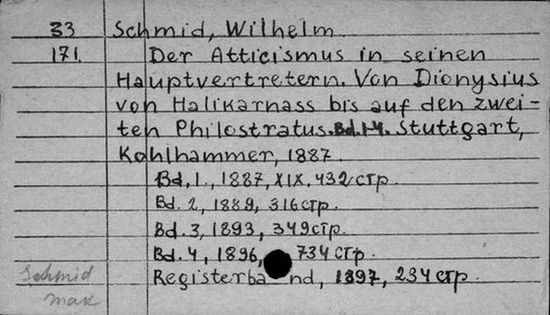 33 Schmid, Wilhelm.
171. Der Atticismus in seinen
Hauptvertretern. Von Dionysius
von Halikarnass bis auf den zwei-
ten Philostratus. Bd. 1-4. Stuttgart,
Kohlhammer, 1887.
Bd. 1., 1887, XIX. 432 стр.
Bd. 2, 1889, 316 стр.
Bd. 3, 1893, 349 стр.
Bd. 4, 1896, 734 стр.
Schmid
Registerband, 1897, 234 стр.
mak